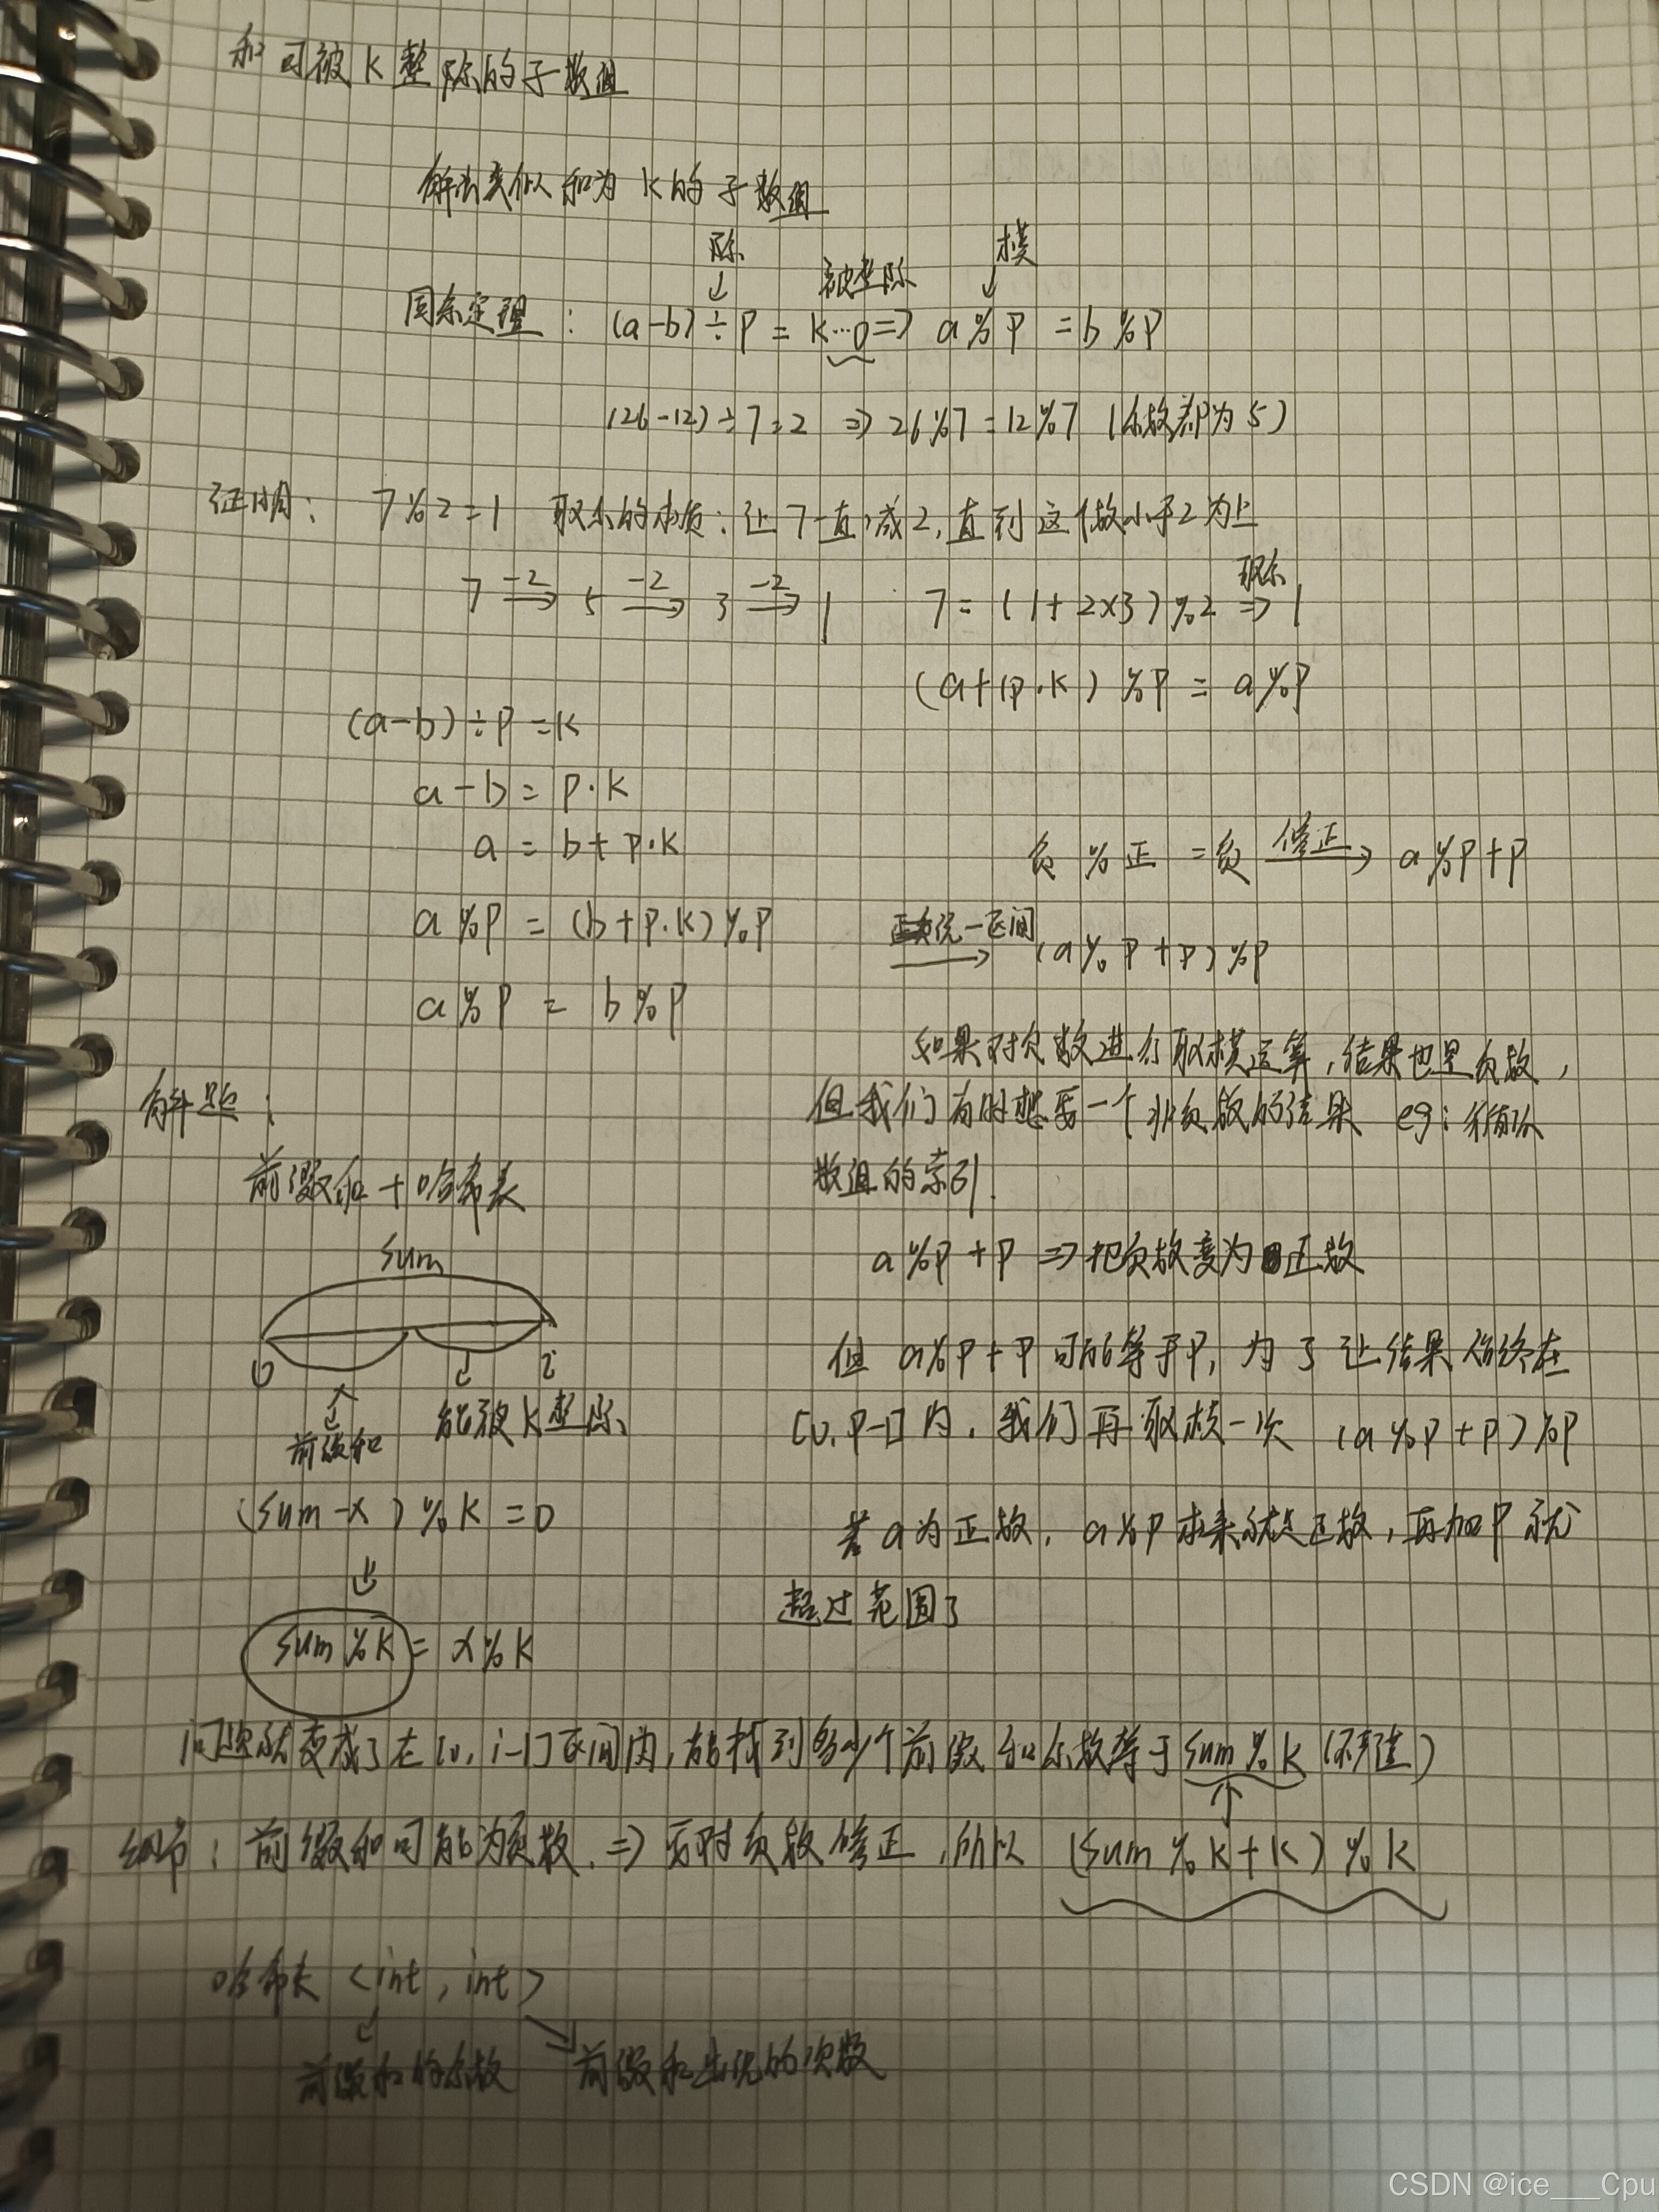 和可被K整除的子数组
解法类似和为K的子数组
除 ↓
被整除
模 ↓
同余定理： (a-b)÷P = K…0 => a%P = b%P
(26-12)÷7=2 => 26%7=12%7 (余数都为5)
证明： 7%2=1 取余的本质：让7一直减2，直到这个数小于2为止
7 -2→ 5 -2→ 3 -2→ 1
7=(1+2×3)%2 取余=> 1
(a+(p·K)%P = a%P
(a-b)÷P=K
a-b=P·K
a=b+P·K
a%P=(b+P·K)%P
a%P = b%P
负%正=负 修正→ a%P+P
正负统一区间→ (a%P+P)%P
如果对负数进行取模运算，结果也是负数，
但我们有时想要一个非负数的结果 eg：循环
数组的索引.
a%P+P => 把负数变为正数
但 a%P+P可能等于P，为了让结果始终在
[0,P-1]内，我们再取模一次 (a%P+P)%P
若a为正数，a%P本来就是正数，再加P就
超过范围了
解题：
前缀和+哈希表
sum
0
i
前缀和
能被K整除
(sum-x)%K=0
⇓
sum%K=x%K
问题就变成了在[0,i-1]区间内，能找到多少个前缀和余数等于sum%K(不严谨)
细节：前缀和可能为负数.=>要对负数修正，所以 (sum%K+K)%K
哈希表<int,int>
前缀和的余数
前缀和出现的次数
CSDN @ice___Cpu